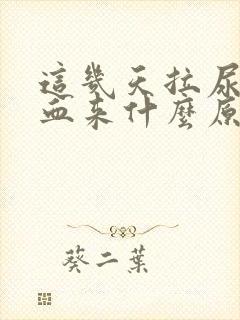 這幾天拉尿
血來什麼原
葵二葉